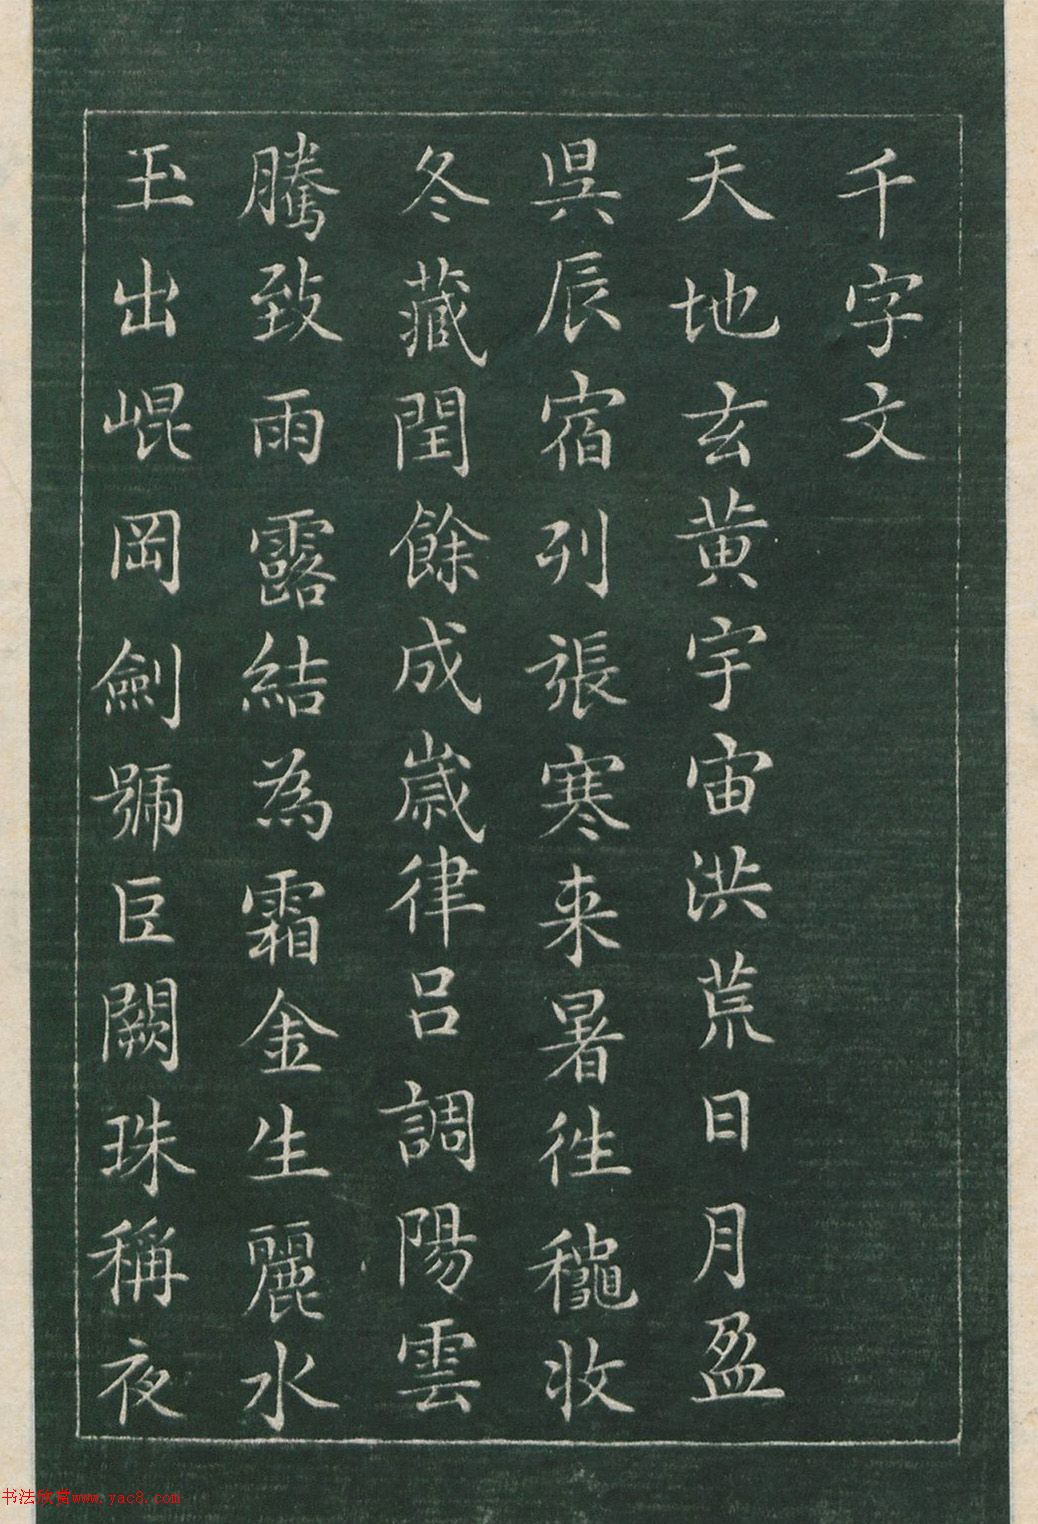 千字文
天地玄黄宇宙洪荒日月盈
昃辰宿列張寒来暑往穐收
冬藏閏餘成嵗律吕調陽雲
騰致雨露結為霜金生麗水
玉出崐岡劍號巨闕珠稱夜
书法欣赏www.yac8.com